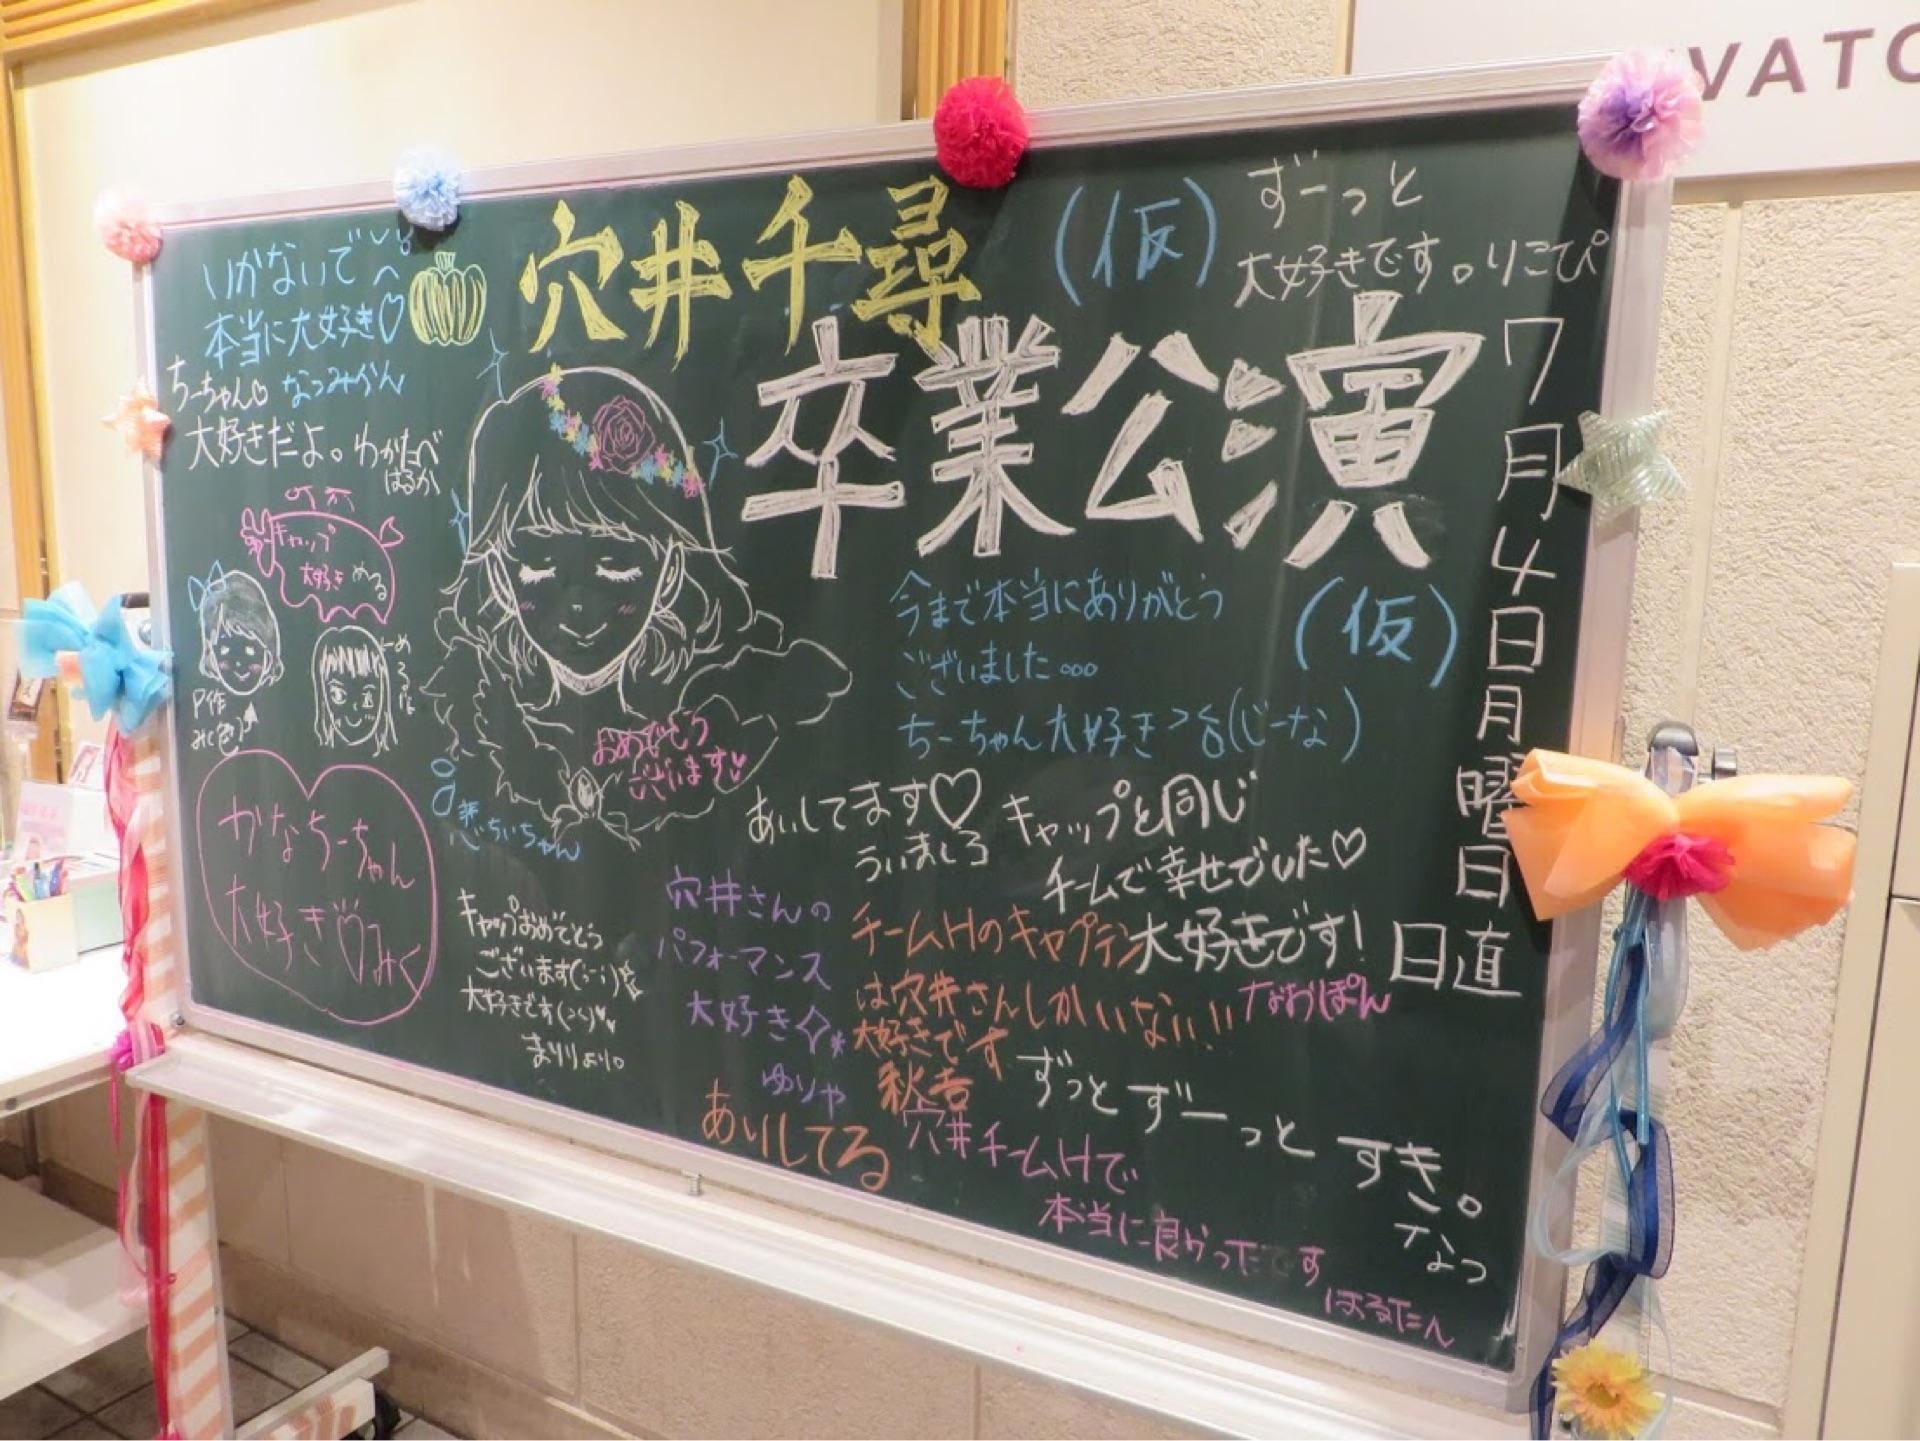 穴井千尋
(仮)
卒業公演
(仮)
7月4日月曜日
日直
ずーっと
大好きです。りこぴ
いかないで
本当に大好き♡
なつみかん
ちーちゃん♡
大好きだよ。わかたべ
はるか
キャップ
大好き
める
P作
かなちーちゃん
大好き♡みく
おめでとう
ございます
ちぃちゃん
今まで本当にありがとう
ございました...
ちーちゃん大好き(じーな)
あいしてます♡
ういましろ
キャップと同じ
チームで幸せでした♡
大好きです!
なおぽん
キャップおめでとう
ございます
大好きです
まりりより。
穴井さんの
パフォーマンス
大好き
ゆりや
チームHのキャプテン
は穴井さんしかいない!!
大好きです
秋吉
あいしてる
ずっとずーっと すき。
なつ
穴井チームHで
本当に良かったです
はるたん
VATO